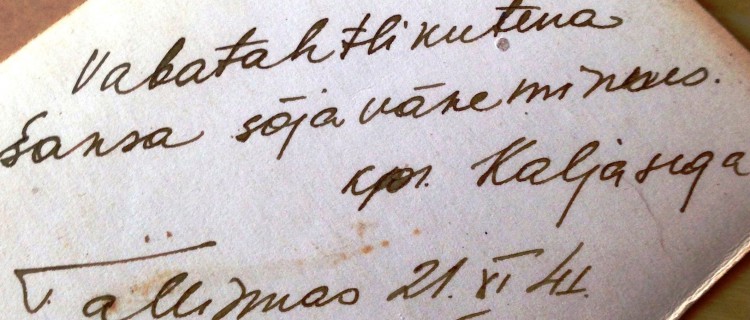 Vabatahtlikutena
Saksa sõjaväkke minnes.
kpr. Kaljasega
Tallinnas 21. XI 41.